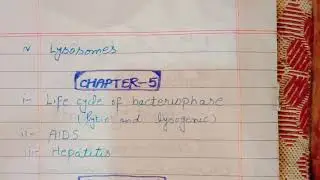 v Lysosomes
CHAPTER-5
i- Life cycle of bacteriophase
(lytic and lysogenic)
ii- AIDS
iii- Hepatitis